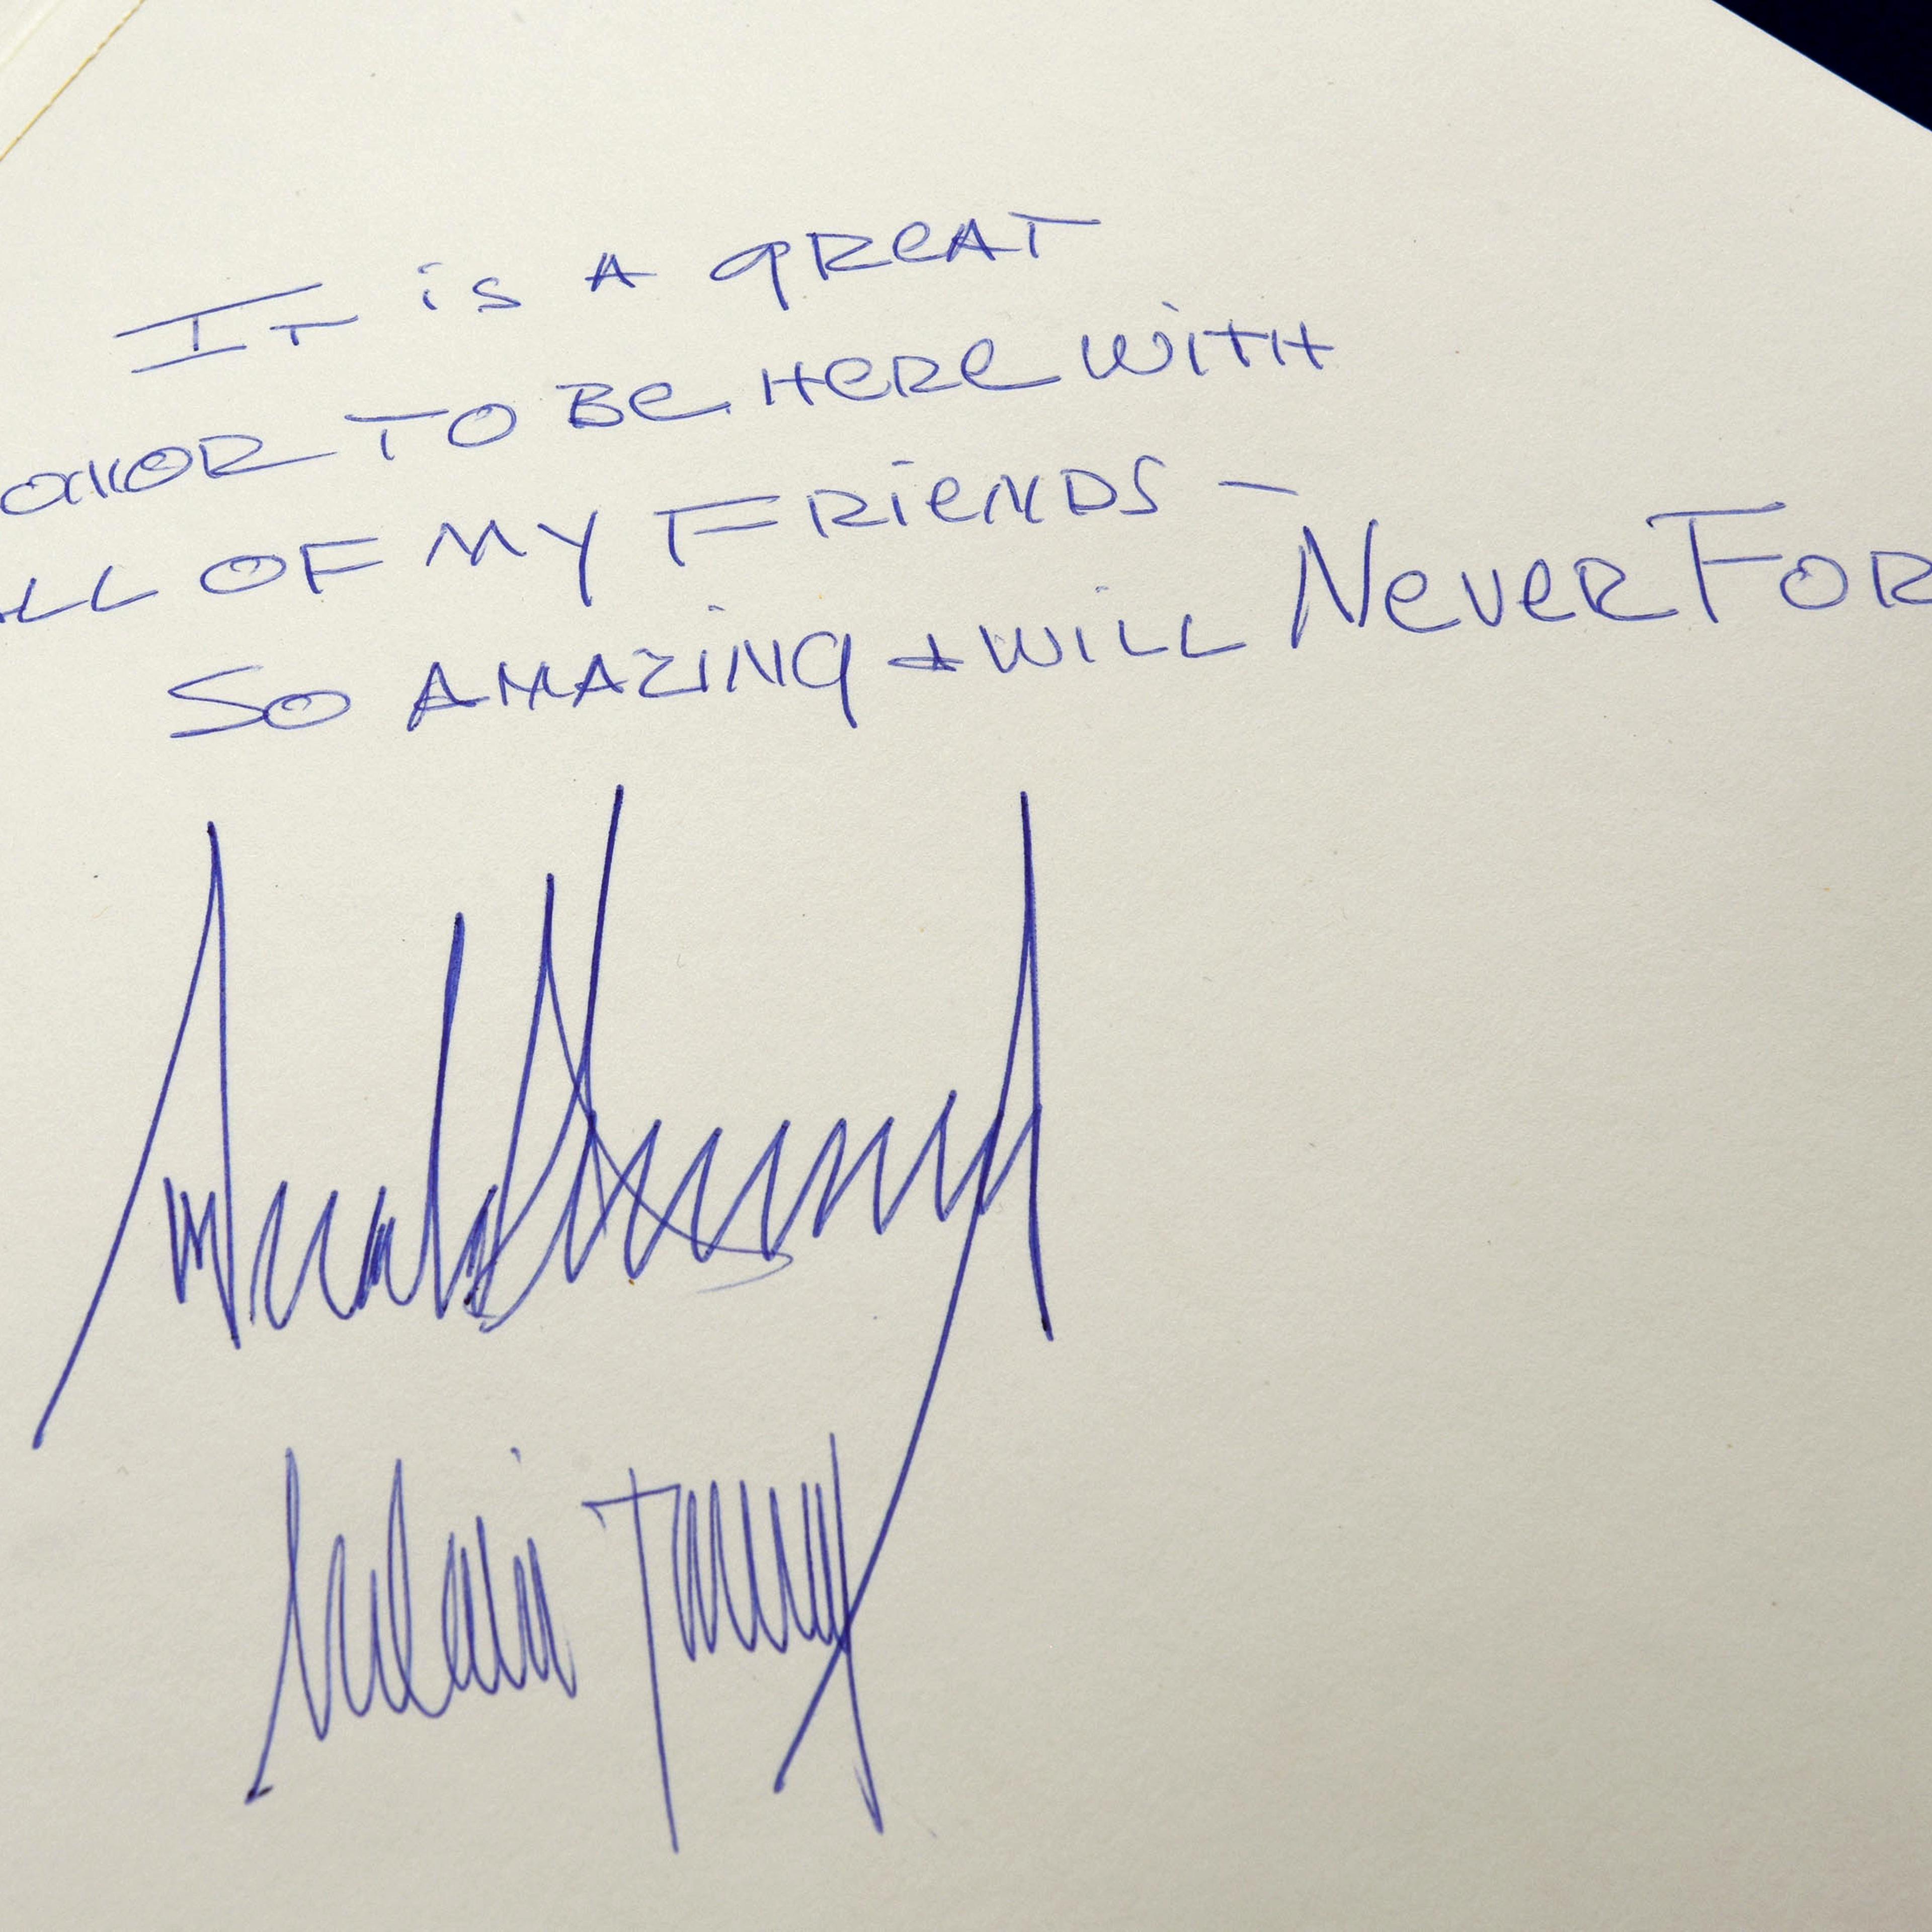 It is A great
onor to be here with
ll of my Friends -
So Amazing + will Never For